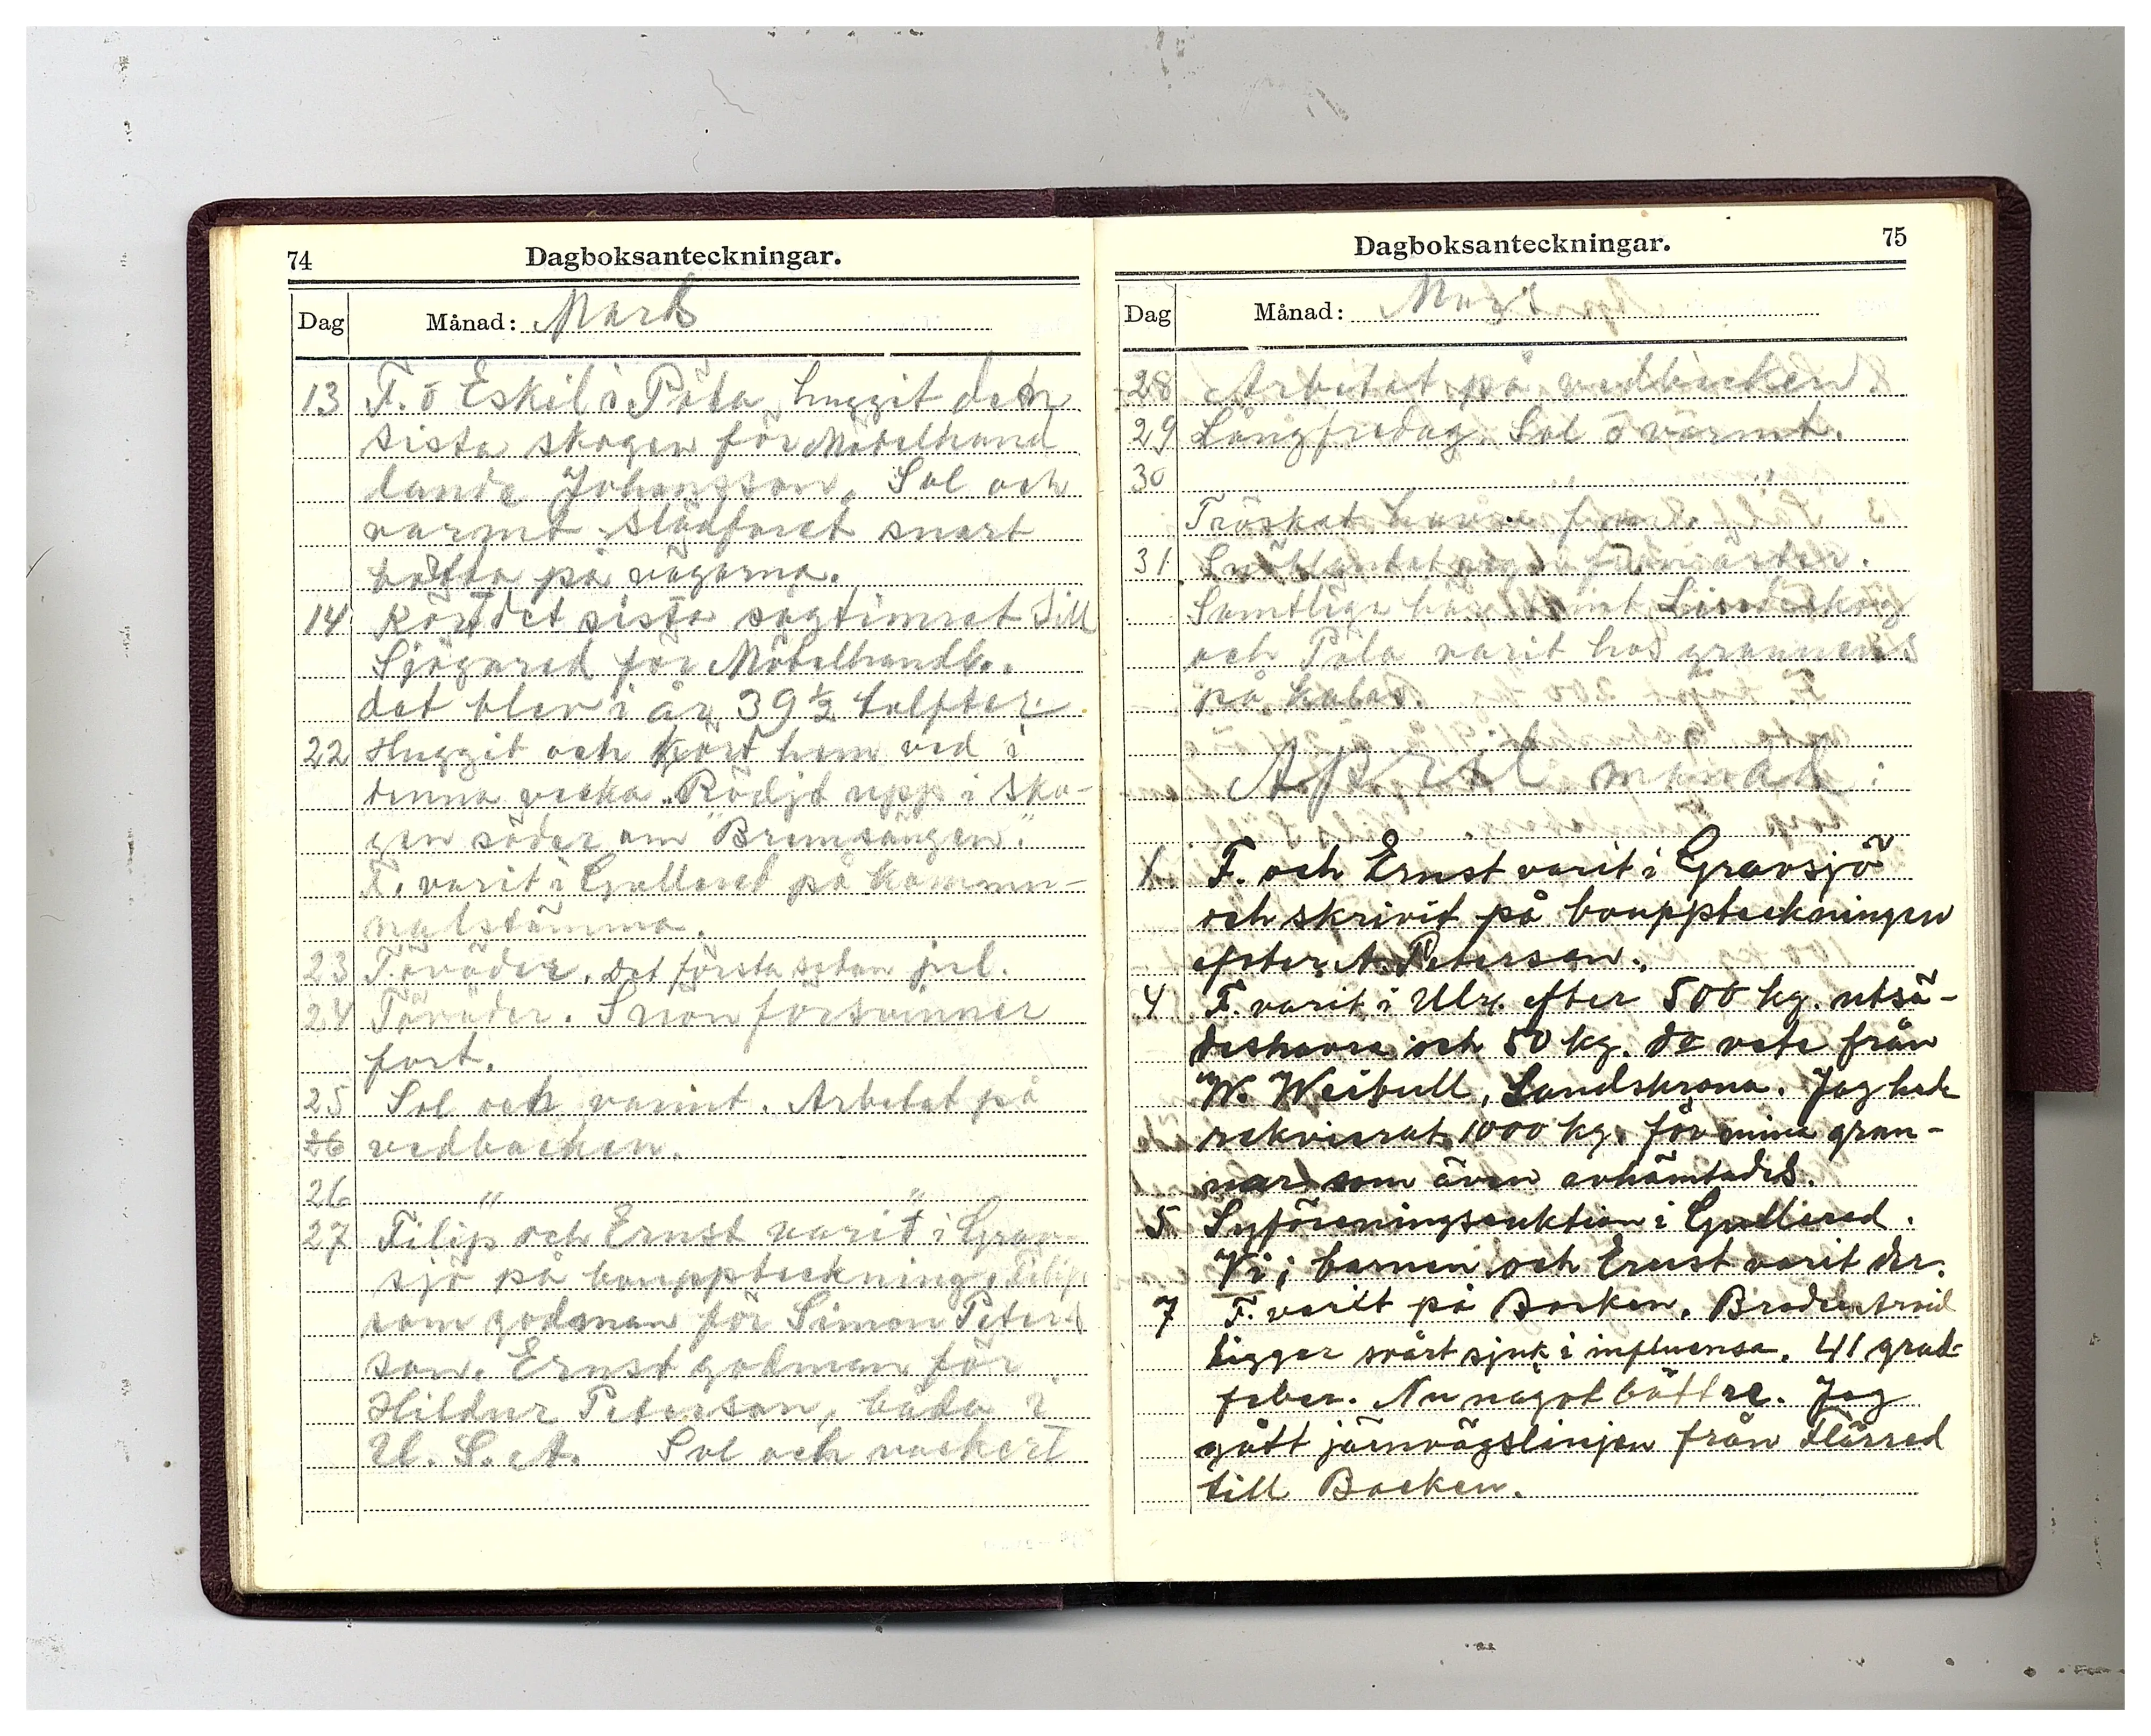 74
Dagboksanteckningar.
Dag
Månad: Mars
13 F. o Eskil i Påla huggit den
sista skogen för Möbelhand
lande Johansson. Sol och
varmt slädföret snart
på vägarna.
14 Kört det sista sågtimret till
Sjögared för Möbelhandl.
det blev i år 39 1/2 tolfter.
22 Huggit och kört hem ved i
denna vecka. Rödjt upp i sko-
gen söder om "Bremsängen".
F. varit i Gullered på kommu-
nalstämma.
23 Töväder. Det första sedan jul.
24 Töväder. Snön försvinner
fort.
25 Sol och varmt. Arbetat på
26 vedbacken.
26 " "
27 Filip och Ernst varit i Grav-
sjö på bouppteckning. Filip
som godman för Simon Peter-
son. Ernst godman för
Hildur Peterson, båda i
U. S. A. Sol och vackert
75
Dagboksanteckningar.
Dag
Månad: Mars
28 Arbetat på vedbacken.
29 Långfredag. Sol o varmt.
30 " "
Tröskat havre f.m.
31
Samtliga här samt Lindeskog
och Påla varit hos grannens
på kalas.
April månad:
1. F. och Ernst varit i Gravsjö
och skrivit på bouppteckningen
efter A. Peterson.
4 F. varit i Ulr. efter 500 kg. utsä-
deshavre och 50 kg. do vete från
W. Weibull, Landskrona. Jag hade
rekvirerat 1000 kg. för mina gran-
nar som även avhämtades.
5. Syföreningsauktion i Gullered.
Vi; barnen och Ernst varit der.
7 F. varit på Backen. Broder Arvid
ligger svårt sjuk i influensa. 41 grad-
feber. Nu något bättre. Jag
gått järnvägslinjen från Flärred
till Backen.